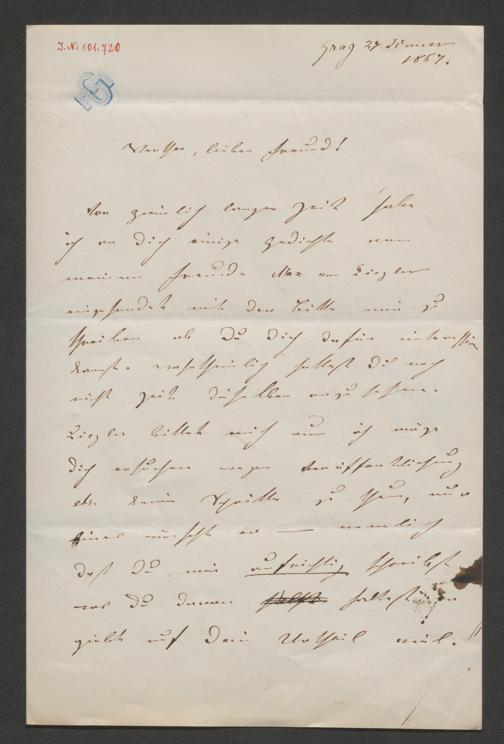 I.N. 101.720
Graz 27 Jänner
1867.
Werther, lieber Freund!
Vor ziemlich langer Zeit habe
ich an Dich einige Gedichte von
meinem Freunde Max von
eingesendet mit der Bitte mir zu
schreiben ob Du Dich dafür interessiren
kannst. Wahrscheinlich hattest Du noch
nicht Zeit dieselben anzusehen.
bittet mich nun ich möge
Dich ersuchen wegen Veröffentlichung
keine Schritte zu thun, nur
Eines wünscht er — nemlich
daß Du mir aufrichtig schreibst
was Du davon hältst
gibt auf Dein Urtheil viel.